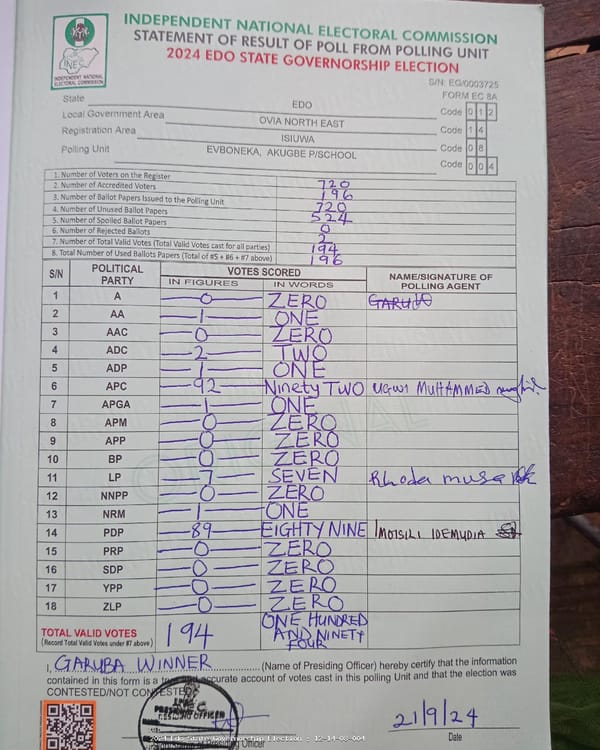 INDEPENDENT NATIONAL ELECTORAL COMMISSION
STATEMENT OF RESULT OF POLL FROM POLLING UNIT
2024 EDO STATE GOVERNORSHIP ELECTION
INEC
INDEPENDENT NATIONAL ELECTORAL COMMISSION
S/N: EG/0003725
FORM EC 8A
State EDO Code 0 1 2
Local Government Area OVIA NORTH EAST Code 1 4
Registration Area ISIUWA Code 0 8
Polling Unit EVBONEKA, AKUGBE P/SCHOOL Code 0 0 4
1. Number of Voters on the Register 720
2. Number of Accredited Voters 196
3. Number of Ballot Papers Issued to the Polling Unit 720
4. Number of Unused Ballot Papers 524
5. Number of Spoiled Ballot Papers 0
6. Number of Rejected Ballots 2
7. Number of Total Valid Votes (Total Valid Votes cast for all parties) 194
8. Total Number of Used Ballots Papers (Total of #5 + #6 + #7 above) 196
S/N POLITICAL PARTY VOTES SCORED NAME/SIGNATURE OF POLLING AGENT
IN FIGURES IN WORDS
1 A 0 ZERO
2 AA 1 ONE
3 AAC 0 ZERO
4 ADC 2 TWO
5 ADP 1 ONE
6 APC 92 Ninety TWO UGWI MUHAMMED
7 APGA 1 ONE
8 APM 0 ZERO
9 APP 0 ZERO
10 BP 0 ZERO
11 LP 7 SEVEN Rhoda musa
12 NNPP 0 ZERO
13 NRM 1 ONE
14 PDP 89 EIGHTY NINE IDEMUDIA
15 PRP 0 ZERO
16 SDP 0 ZERO
17 YPP 0 ZERO
18 ZLP 0 ZERO
TOTAL VALID VOTES 194 ONE HUNDRED AND NINETY FOUR
(Record Total Valid Votes under #7 above)
I, GARUBA WINNER (Name of Presiding Officer) hereby certify that the information
contained in this form is a true and accurate account of votes cast in this polling Unit and that the election was
CONTESTED/NOT CONTESTED
PRESIDING OFFICER
21/9/24
Date
Governorship Election : 12-14-08-004
Officer